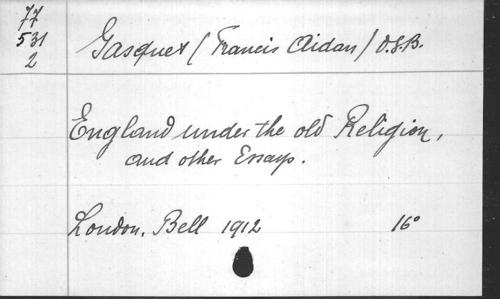 77
531
2
Gasquet (Francis Aidan) O.S.B.
England under the old Religion,
and other Essays.
London, Bell 1912 16°